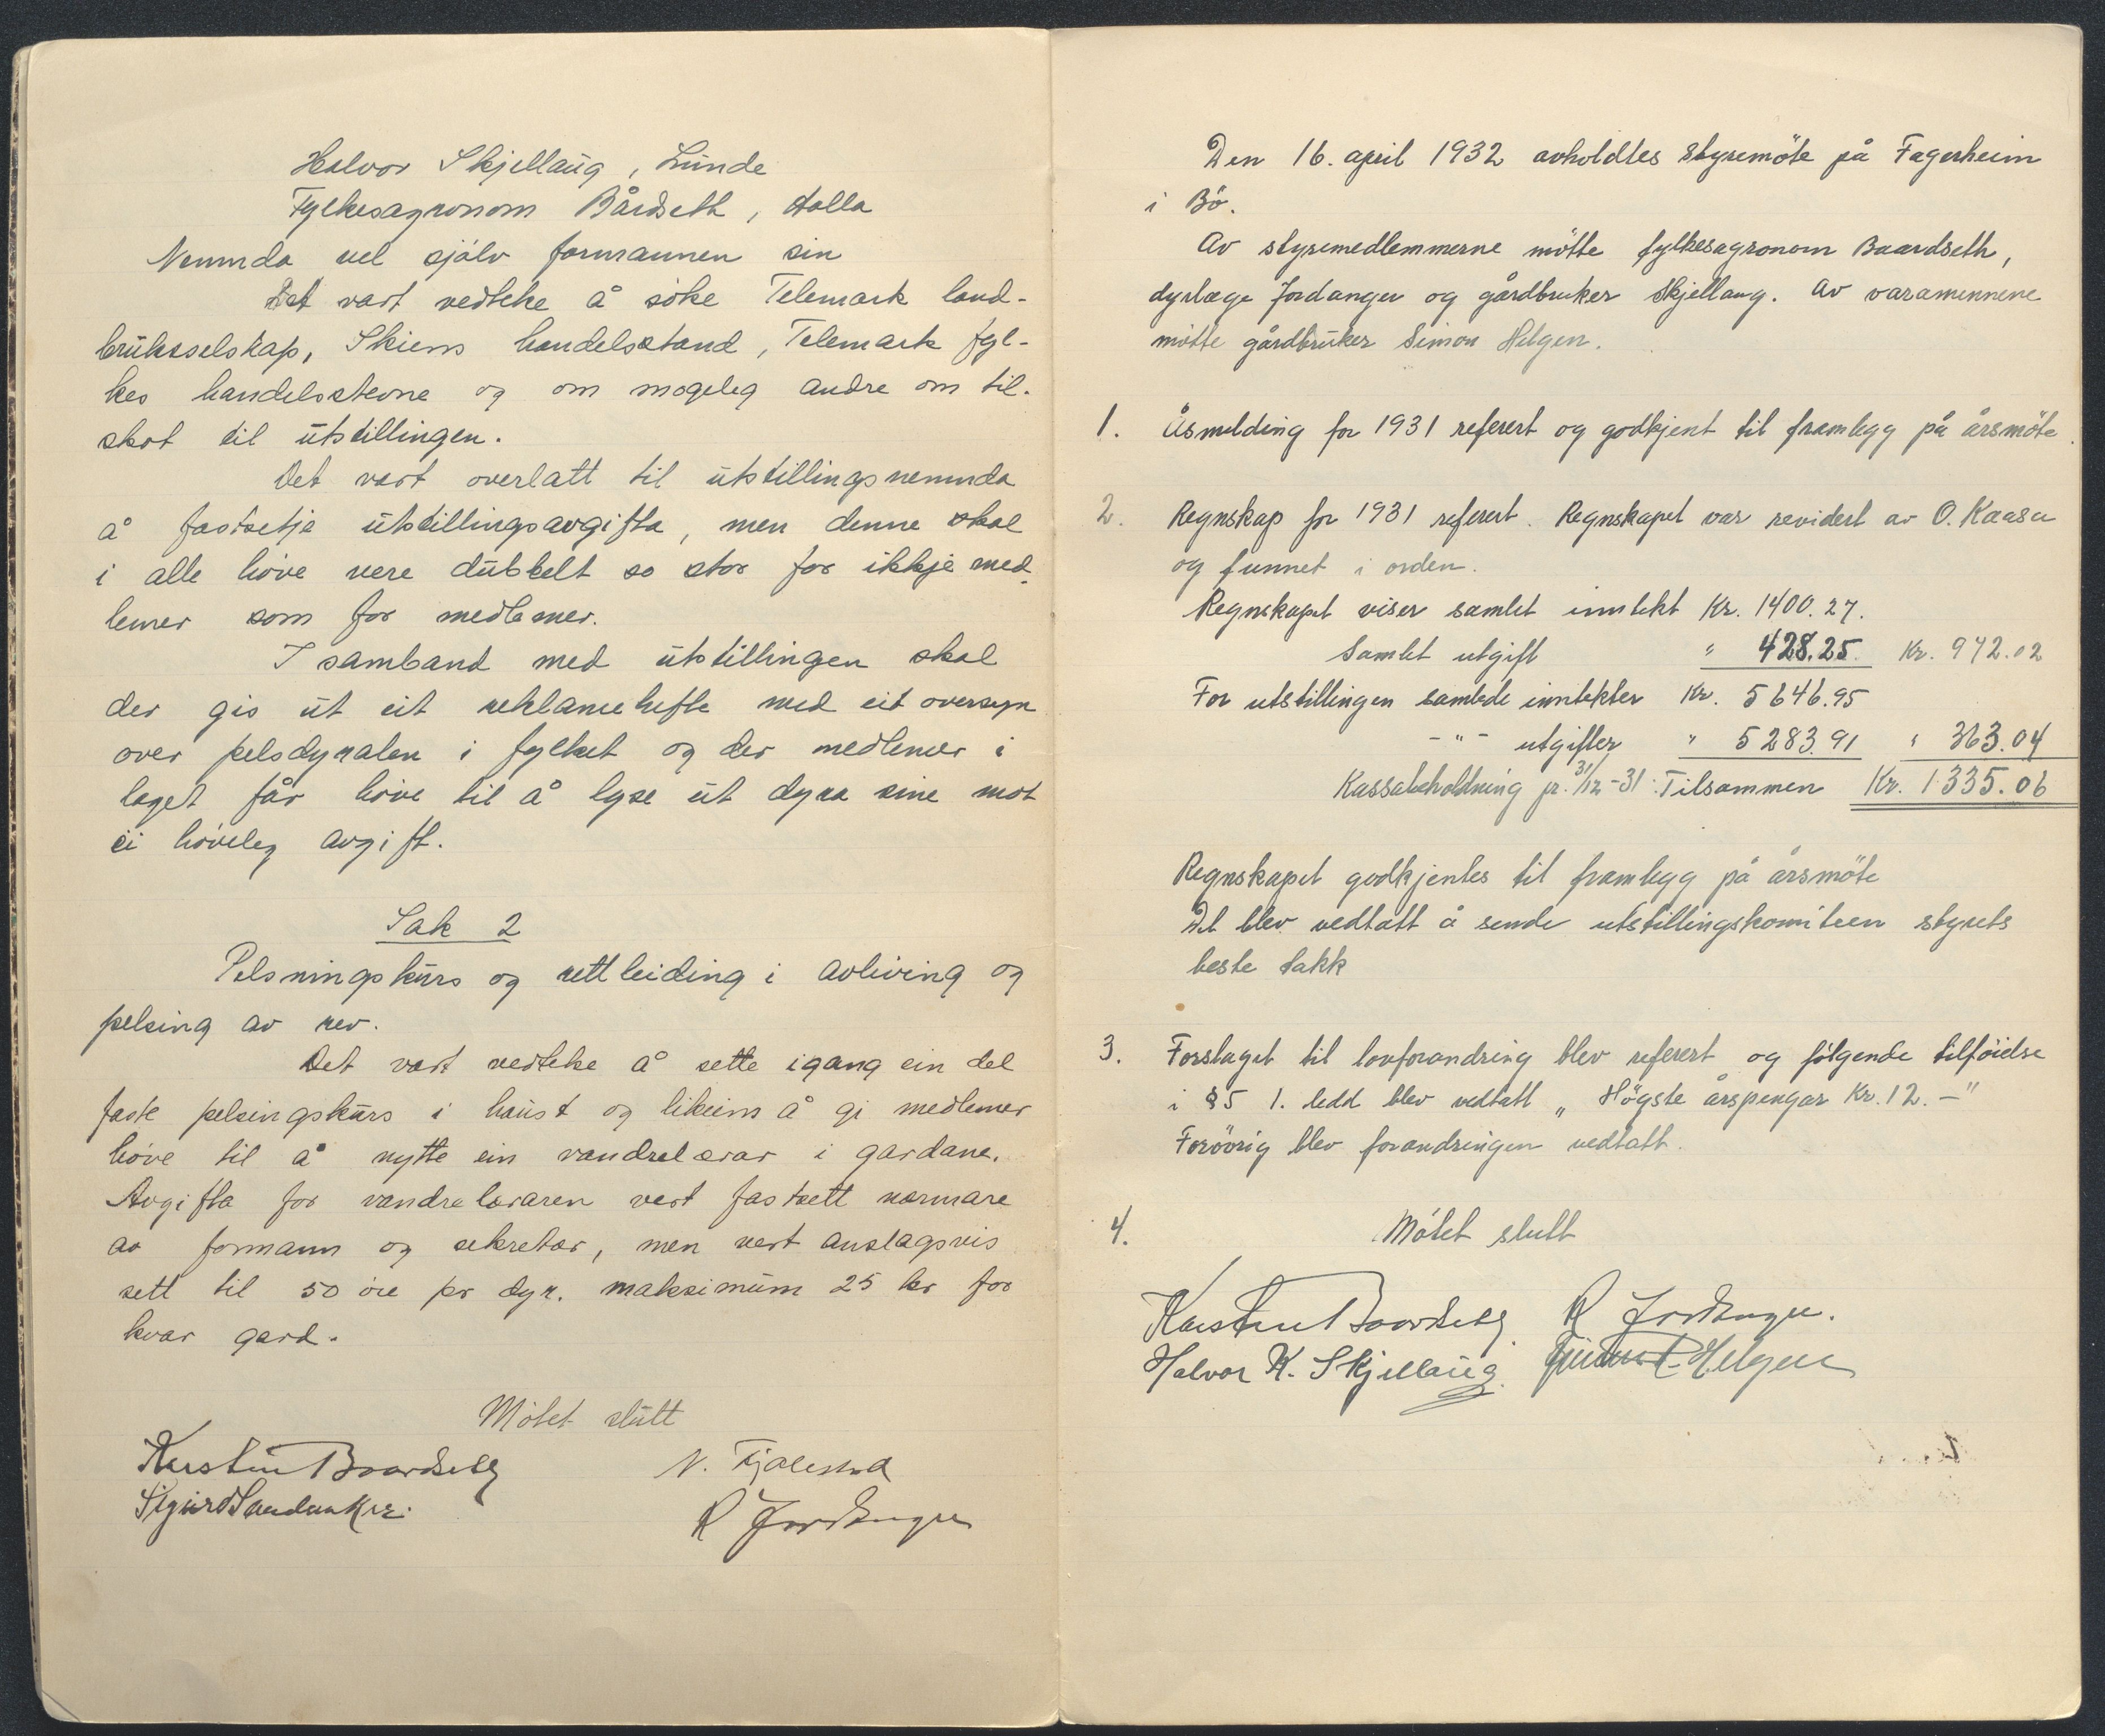 Halvor Skjellaug, Lunde
Fylkesagronom Bårdseth, Holla
Nemnda vel sjölv formannen sin
Det vart vedteke å söke Telemark land-
bruksselskap, Skiens handelsstand, Telemark fyl-
kes handelsstevne og om mogeleg andre om til-
skot til utstillingen.
Det vart overlatt til utstillingsnemnda
å fastsetja utstillingsavgifta, men denne skal
i alle höve vere dubbelt so stor for ikkje med-
lemer som for medlemer.
I samband med utstillingen skal
der gis ut eit reklamehefte med eit oversyn
over pelsdyralen i fylket og der medlemer i
laget får höve til å lyse ut dyra sine mot
ei höveleg avgift.
Sak 2
Pelsningskurs og rettleiding i avliving og
pelsing av rev.
Det vart vedteke å sette igang ein del
faste pelsingskurs i haust og likeins å gi medlemer
höve til å nytte ein vandrelærar i gardane.
Avgifta for vandrelæraren vert fastsett nærmare
av formann og sekretær, men vert anslagsvis
sett til 50 öre pr dyr. maksimum 25 kr for
kvar gard.
Mötet slutt
Karsten Baardseth N. Fjalestad
R Jordanger
Den 16. april 1932 avholdtes styremöte på Fagerheim
i Bö.
Av styremedlemmerne mötte fylkesagronom Baardseth,
dyrlæge Jordanger og gårdbruker Skjellaug. Av varamennene
mötte gårdbruker Simon Helgen.
1. Åsmelding for 1931 referert og godkjent til framlegg på årsmöte.
2. Regnskap for 1931 referert. Regnskapet var revidert av O. Kaasa
og funnet i orden.
Regnskapet viser samlet inntekt Kr. 1400.27.
Samlet utgift " 428.25. Kr. 972.02
For utstillingen samlede inntekter Kr. 5646.95
- " - utgifter " 5283.91 " 363.04
Kassabeholdning pr. 31/12-31: Tilsammen Kr. 1335.06
Regnskapet godkjentes til framlegg på årsmöte
Det blev vedtatt å sende utstillingskomiteen styrets
beste takk
3. Forslaget til lovforandring blev referert og fölgende tilföielse
i § 5 1. ledd blev vedtatt „ Högste årspengar Kr. 12. -"
Forövrig blev forandringen vedtatt.
4. Mötet slutt
Karsten Baardseth R Jordanger.
Halvor K. Skjellaug. Helgen